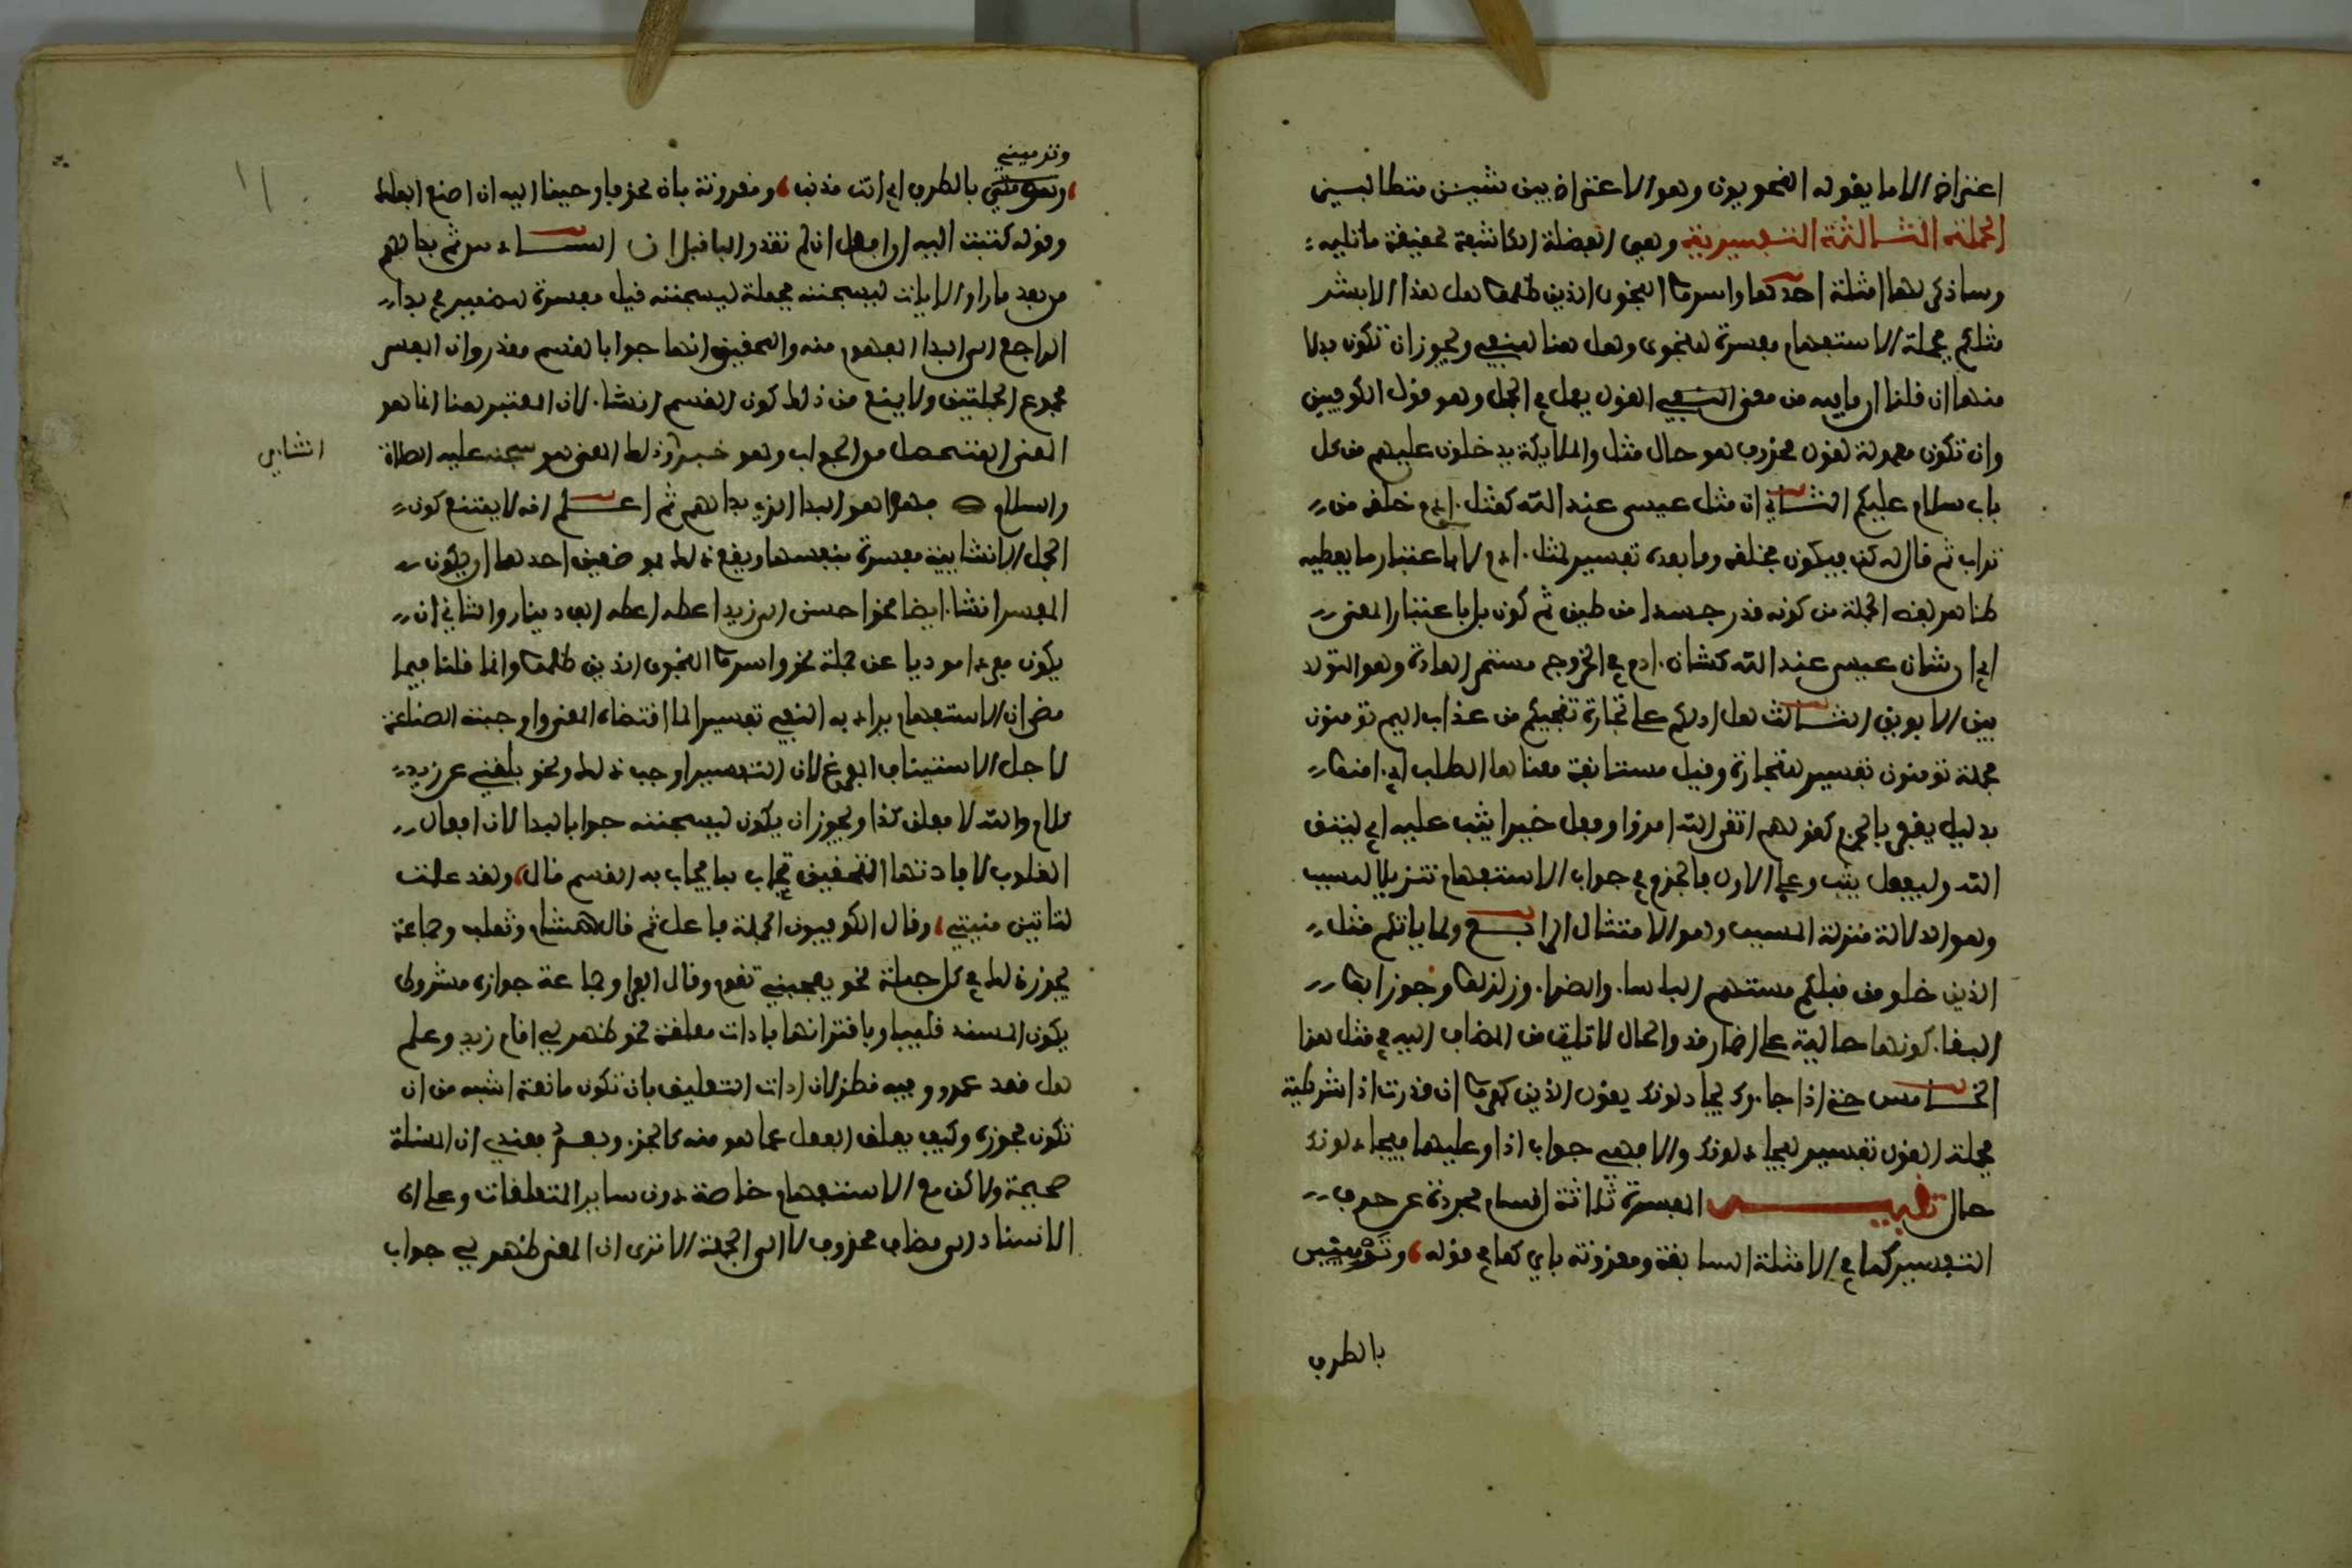 اعتراض الا ما يقوله النحويون وهو الاعتراض بين شيئين متطالبين
الجملة الثالثة التفسيرية وهي الفضلة الكاشفة لحقيقة ما تليه
وساذكر لها امثلة احدها واسروا النجوى الذين ظلموا هل هذا الا بشر
مثلكم فجملة الاستفهام مفسرة للنجوى وهل هنا للنفي ويجوز ان تكون بدلا
منها ان قلنا ان ما فيه من معنى القول يعمل في الجمل وهو قول الكوفيين
وان تكون معمولة لقول محذوف هو حال مثل والملايكة يدخلون عليهم من كل
باب سلام عليكم الثاني ان مثل عيسى عند الله كمثل ادم خلقه من
تراب ثم قال له كن فيكون فخلقه وما بعده تفسير لمثل ادم لا باعتبار ما يعطيه
ظاهر لفظ الجملة من كونه قدر جسدا من طين ثم كون بل باعتبار المعنى
اي ان شان عيسى عند الله كشان ادم في الخروج مستمر العادة وهو التولد
بين الابوين الثالث هل ادلكم على تجارة تنجيكم من عذاب اليم تومنون
فجملة تومنون تفسير للتجارة وقيل مستانفة معناها الطلب اي امنوا
بدليل يغفر بالجزم كقولهم اتقى الله امرؤا وفعل خيرا يثب عليه اي ليتق
الله وليفعل يثب وعلى الاول فالجزم في جواب الاستفهام تنزيلا للسبب
وهو الدلالة منزلة المسبب وهو الامتثال الرابع ولما ياتكم مثل
الذين خلو من قبلكم مستهم الباسا والضرا وزلزلوا وجوز ابو
البقا كونها حالية على اضمار قد والحال لا تاتي من المضاف اليه في مثل هذا
الخامس حتى اذا جاوك يجادلونك يقول الذين كفروا ان قدرت اذا شرطية
فجملة القول تفسير ليجادلونك والا فهي جواب اذا وعليها فيجادلونك
حال تنبيه المفسرة ثلاثة اقسام مجردة عن حرف
التفسير كما في الامثلة السابقة ومقرونة باي كما في قوله وترمينني
بالطرف
وترمينني
بالطرف اي انت مذنب ومقرونة بان نحو فاوحينا اليه ان اصنع الفلك
وقوله كتبت اليه ان افعل ان لم تقدر البا قبل ان السادس ثم بدا لهم
من بعد ما راو الايات ليسجننه فجملة ليسجننه قيل مفسرة للضمير في بدا
الراجع الى البدا المفهوم منه والتحقيق انها جواب لقسم مقدر وان المفسر
مجموع الجملتين ولا يمنع من ذلك كون القسم انشا لان المعتبر هنا انما هو
المعنى المتحصل من الجواب وهو خبري وذلك المعنى هو سجنه عليه الصلاة
والسلام فهذا هو البدا الذي بدا لهم ثم اعلم انه لا يمتنع كون
الجمل الانشايية مفسرة بنفسها ويقع ذلك في موضعين احدهما ان يكون
المفسر انشا ايضا نحو احسن الى زيد اعطه اعطه الف دينار والثاني ان
يكون مفردا موديا عن جملة نحو واسروا النجوى الذين ظلموا وانما قلنا فيما
مضى ان الاستفهام يراد به النفي تفسيرا لما اقتضاه المعنى واوجبته الصناعة
لاجل الاستثناف المفرغ لان التفسير اوجب ذلك ونحو بلغني عن زيد
كلام والله لافعلن كذا ويجوز ان يكون ليسجننه جوابا لبدا لان افعال
القلوب لافادتها التحقيق تجاب بما يجاب به القسم قال ولقد علمت
لتاتين منيتي وقال الكوفيون الجملة فاعل ثم قال هشام وثعلب وجماعة
يجوز ذلك في كل جملة نحو يعجبني تقوم وقال الفرا وجماعة جوازه مشروط
بكون المسند قلبيا وباقترانها بادات معلقة نحو ظهر لي اقام زيد وعلم
هل قعد عمرو وفيه نظر لان ادات التعليق بان تكون مانعة اشبه من ان
تكون مجوزة وكيف يعلق الفعل عما هو منه كالجز وبعد فعندي ان المسئلة
صحيحة ولاكن مع الاستفهام خاصة دون ساير المتعلقات وعلى ان
الاسناد الى مضاف محذوف لا الى الجملة الا ترى ان المعنى ظهر لي جواب
انشايي
١١